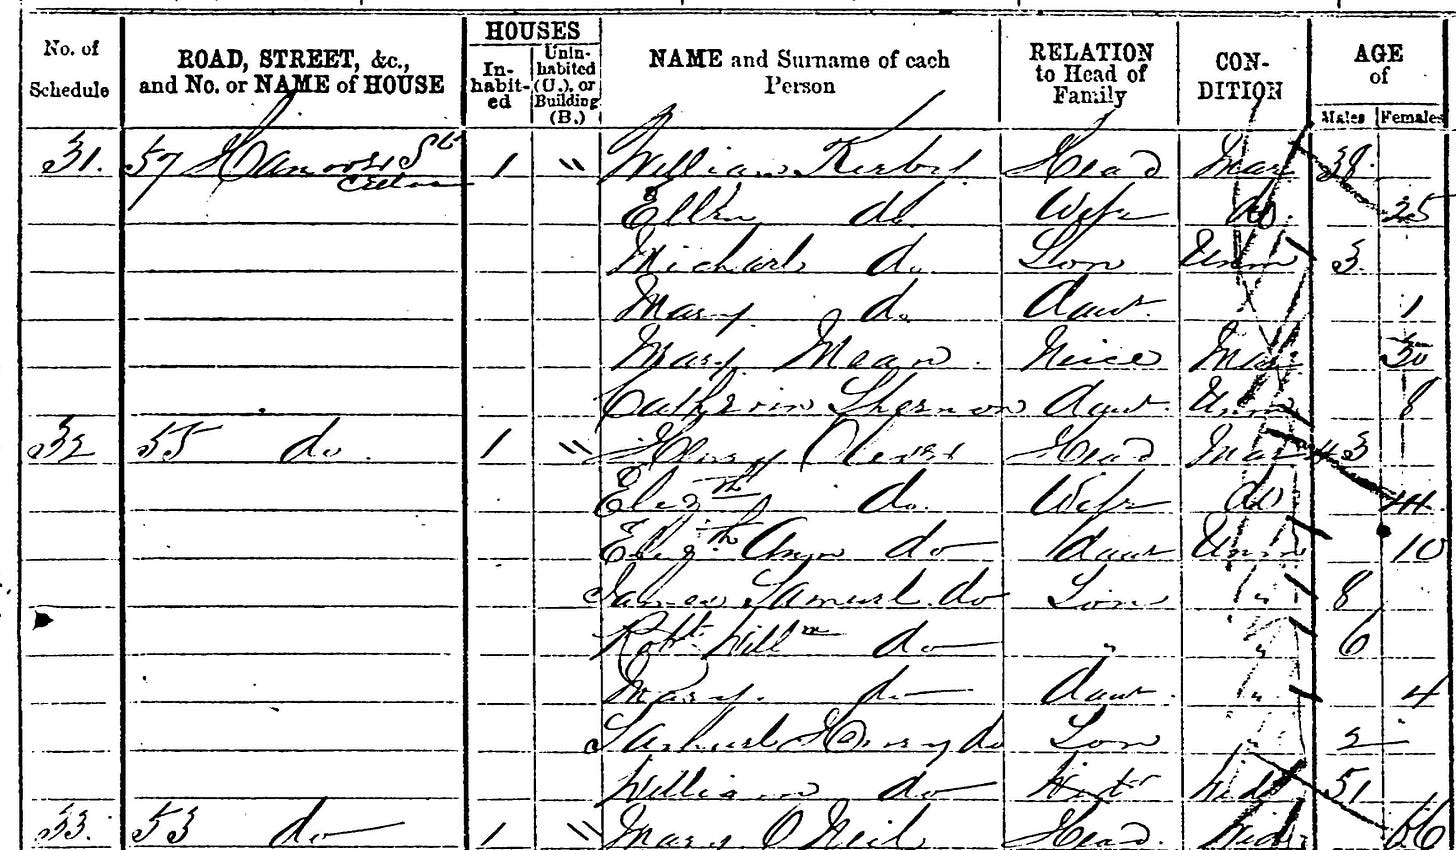 No. of Schedule ROAD, STREET, &c., and No. or NAME of HOUSE HOUSES In-habit-ed Unin-habited (U.), or Building (B.) NAME and Surname of each Person RELATION to Head of Family CON-DITION AGE of Males Females
31. 57 Hanover St 1 " William Kirby Head Mar 38
Cellar
Ellen do Wife do 25
Michael do Son Unm 3
Mary do Daur 1
Mary Mean Neice Mar 30
Catherin Daur Unm 8
32 55 do 1 " Henry Head Mar 43
Elizth do Wife do 44
Elizth Ann do daur Unm 10
James Samuel do Son " 8
Robt Willm do " " 6
Mary do daur " 4
Samuel Henry do Son 2
William do Wid 51
33. 53 do 1 " Mary O Neil Head Wid 66